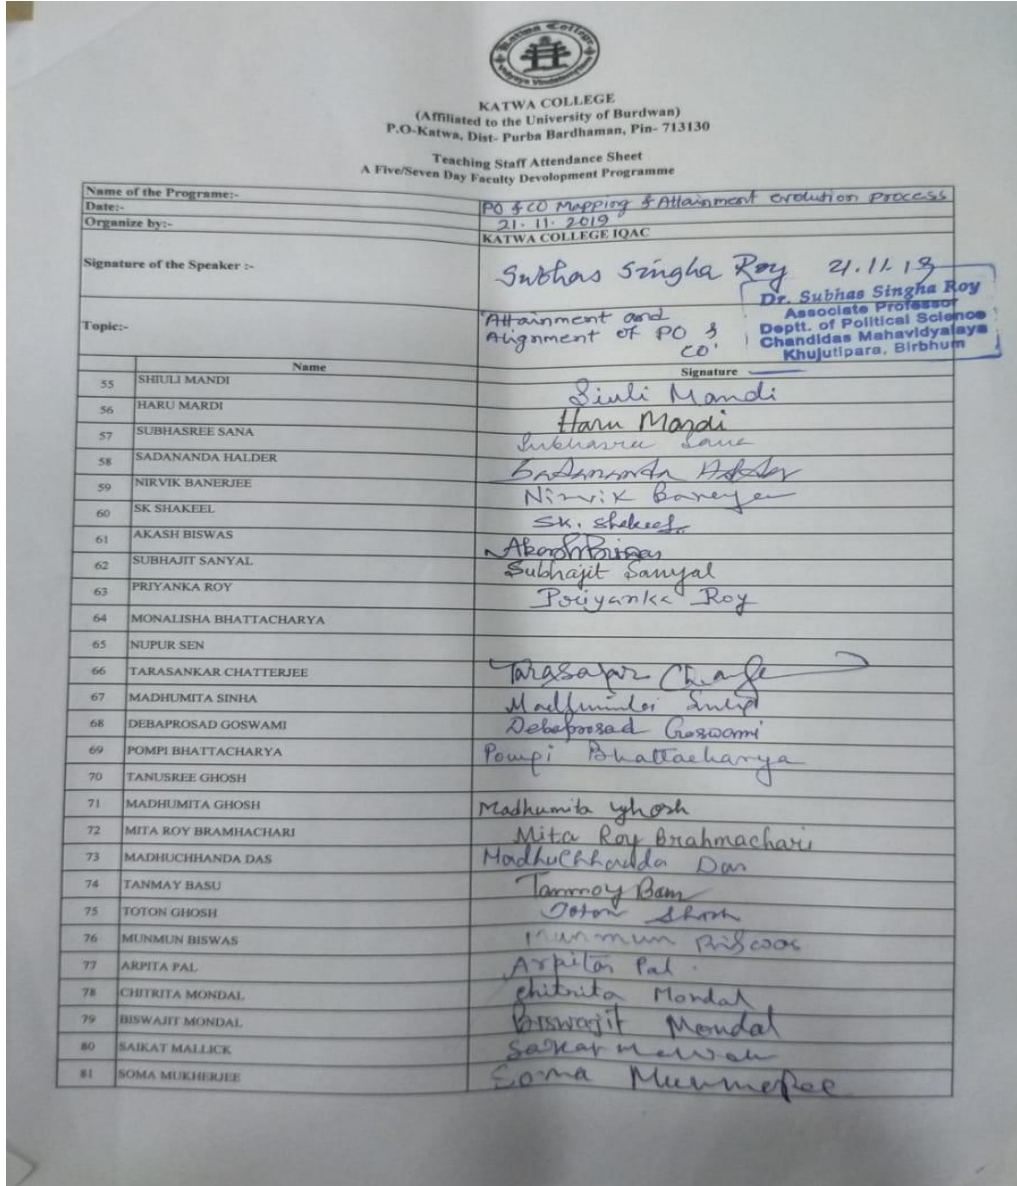 Katwa College
KATWA COLLEGE
(Affiliated to the University of Burdwan)
P.O-Katwa, Dist- Purba Bardhaman, Pin- 713130
Teaching Staff Attendance Sheet
A Five/Seven Day Faculty Devolopment Programme
Name of the Programe:- PO & CO Mapping & Attainment evolution process
Date:- 21.11.2019
Organize by:- KATWA COLLEGE IQAC
Signature of the Speaker :- Subhas Singha Roy 21.11.19
Dr. Subhas Singha Roy
Associate Professor
Deptt. of Political Science
Chandidas Mahavidyalaya
Khujutipara, Birbhum
Topic:- 'Attainment and
Alignment of PO &
CO'
Name Signature
55 SHIULI MANDI Siuli Mandi
56 HARU MARDI Haru Mardi
57 SUBHASREE SANA Subhasree Sana
58 SADANANDA HALDER Sadananda Halder
59 NIRVIK BANERJEE Nirvik Banerjee
60 SK SHAKEEL Sk. Shakeel
61 AKASH BISWAS Akash Biswas
62 SUBHAJIT SANYAL Subhajit Sanyal
63 PRIYANKA ROY Priyanka Roy
64 MONALISHA BHATTACHARYA
65 NUPUR SEN
66 TARASANKAR CHATTERJEE
67 MADHUMITA SINHA Madhumita Sinha
68 DEBAPROSAD GOSWAMI Debaprosad Goswami
69 POMPI BHATTACHARYA Pompi Bhattacharya
70 TANUSREE GHOSH
71 MADHUMITA GHOSH Madhumita Ghosh
72 MITA ROY BRAMHACHARI Mita Roy Brahmachari
73 MADHUCHHANDA DAS Madhuchhanda Das
74 TANMAY BASU Tanmoy Basu
75 TOTON GHOSH Toton Ghosh
76 MUNMUN BISWAS Munmun Biswas
77 ARPITA PAL Arpita Pal
78 CHITRITA MONDAL Chitrita Mondal
79 BISWAJIT MONDAL Biswajit Mondal
80 SAIKAT MALLICK
81 SOMA MUKHERJEE Soma Mukherjee